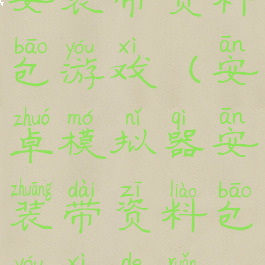 安装带资料
bāo yóu xì ān
包游戏（安
zhuó mó nǐ qì ān
卓模拟器安
zhuāng dài zī liào bāo
装带资料包
yóu xì de